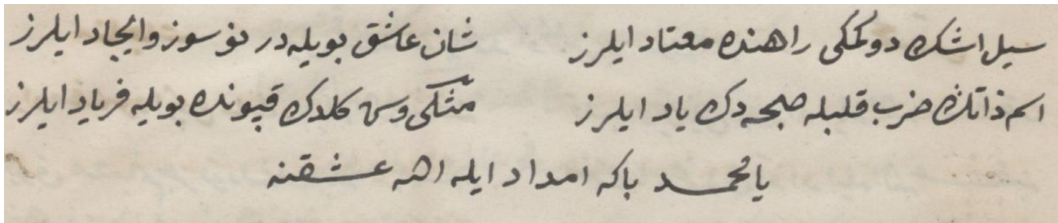 سيل اشك دوكمكى راهنده معتاد ايلرز شان عاشق بويله در نوسوز و ايجاد ايلرز
اسم ذاتك ضرب قلبله صبحه دك ياد ايلرز كلدك قپونده بويله فرياد ايلرز
يا محمد باكه امداد ايله الله عشقنه